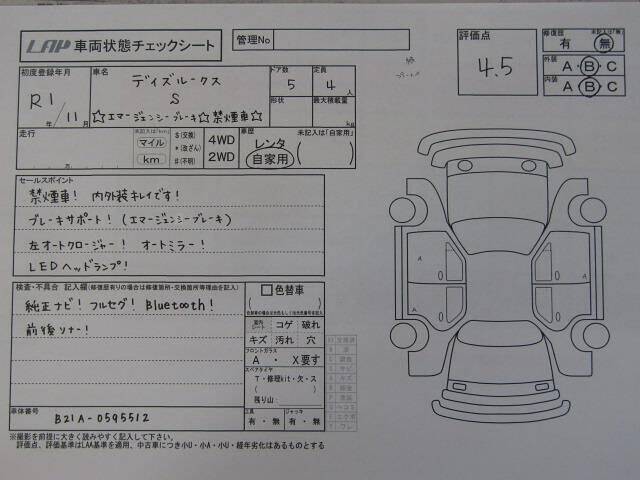 LAP 車両状態チェックシート
管理No
評価点
4.5
修復歴
未記入は「無」
有 ・ 無
外装
A・B・C
内装
A・B・C
初度登録年月
R1/11月
年
車名
ディズルークス
S
☆エマージェンシーブレーキ☆禁煙車☆
ドア数
5
定員
4人
形状
最大積載量
kg
走行
万
未記入は「km」
マイル
km
$(交換)
*(改ざん)
#(不明)
4WD
2WD
車歴
未記入は「自家用」
レンタ
自家用
セールスポイント
禁煙車! 内外装キレイです!
ブレーキサポート!(エマージェンシーブレーキ)
左オートクロージャー! オートミラー!
LEDヘッドランプ!
検査・不具合 記入欄(修復歴有りの場合は修復箇所・交換箇所等理由を記入)
純正ナビ!フルセグ!Bluetooth!
前後ソナー!
色替車
コゲ 破れ
キズ 汚れ 穴
フロントガラス
A ・ X要す
スペアタイヤ
T・修理kit・欠・ス
残り山:
工具
有・無
ジャッキ
有・無
車体番号
B21A-0595512
A
A
※撮影を前提に大きく読みやすく記入して下さい。
評価点、評価基準はLAA基準を適用、中古車につき小U・小A・小U・経年劣化はあるものとする